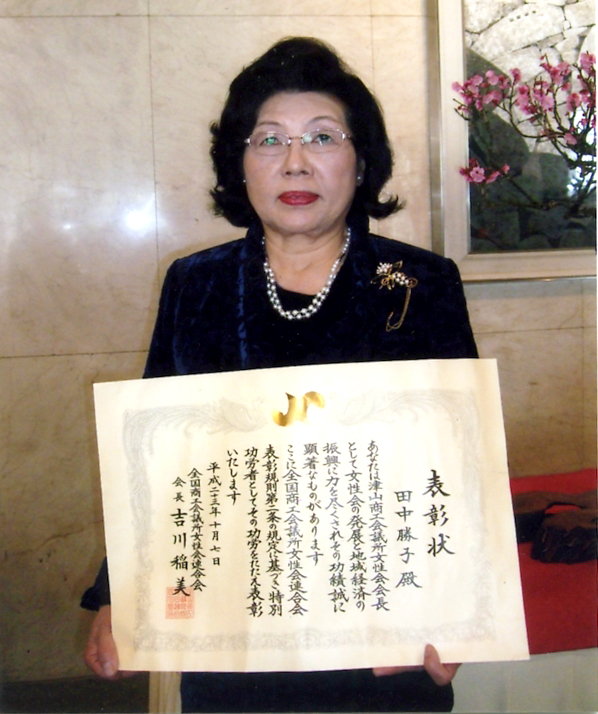 表彰状
田中勝子殿
あなたは津山商工会議所女性会会長
として女性会の発展と地域経済の
振興に力を尽くされその功績誠に
顕著なものがあります
ここに全国商工会議所女性会連合会
表彰規則第二条の規定に基づき特別
功労者としてその功労をたたえ表彰
いたします
平成二十三年十月七日
全国商工会議所女性会連合会
会長 吉川稲美